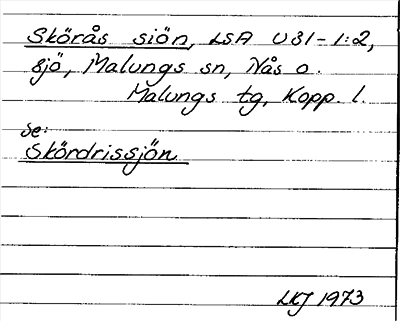 Skörås siön, LSA U31-1:2,
sjö, Malungs sn, Nås o.
Malungs tg, Kopp. l.
se:
Skördrissjön
LKJ 1973